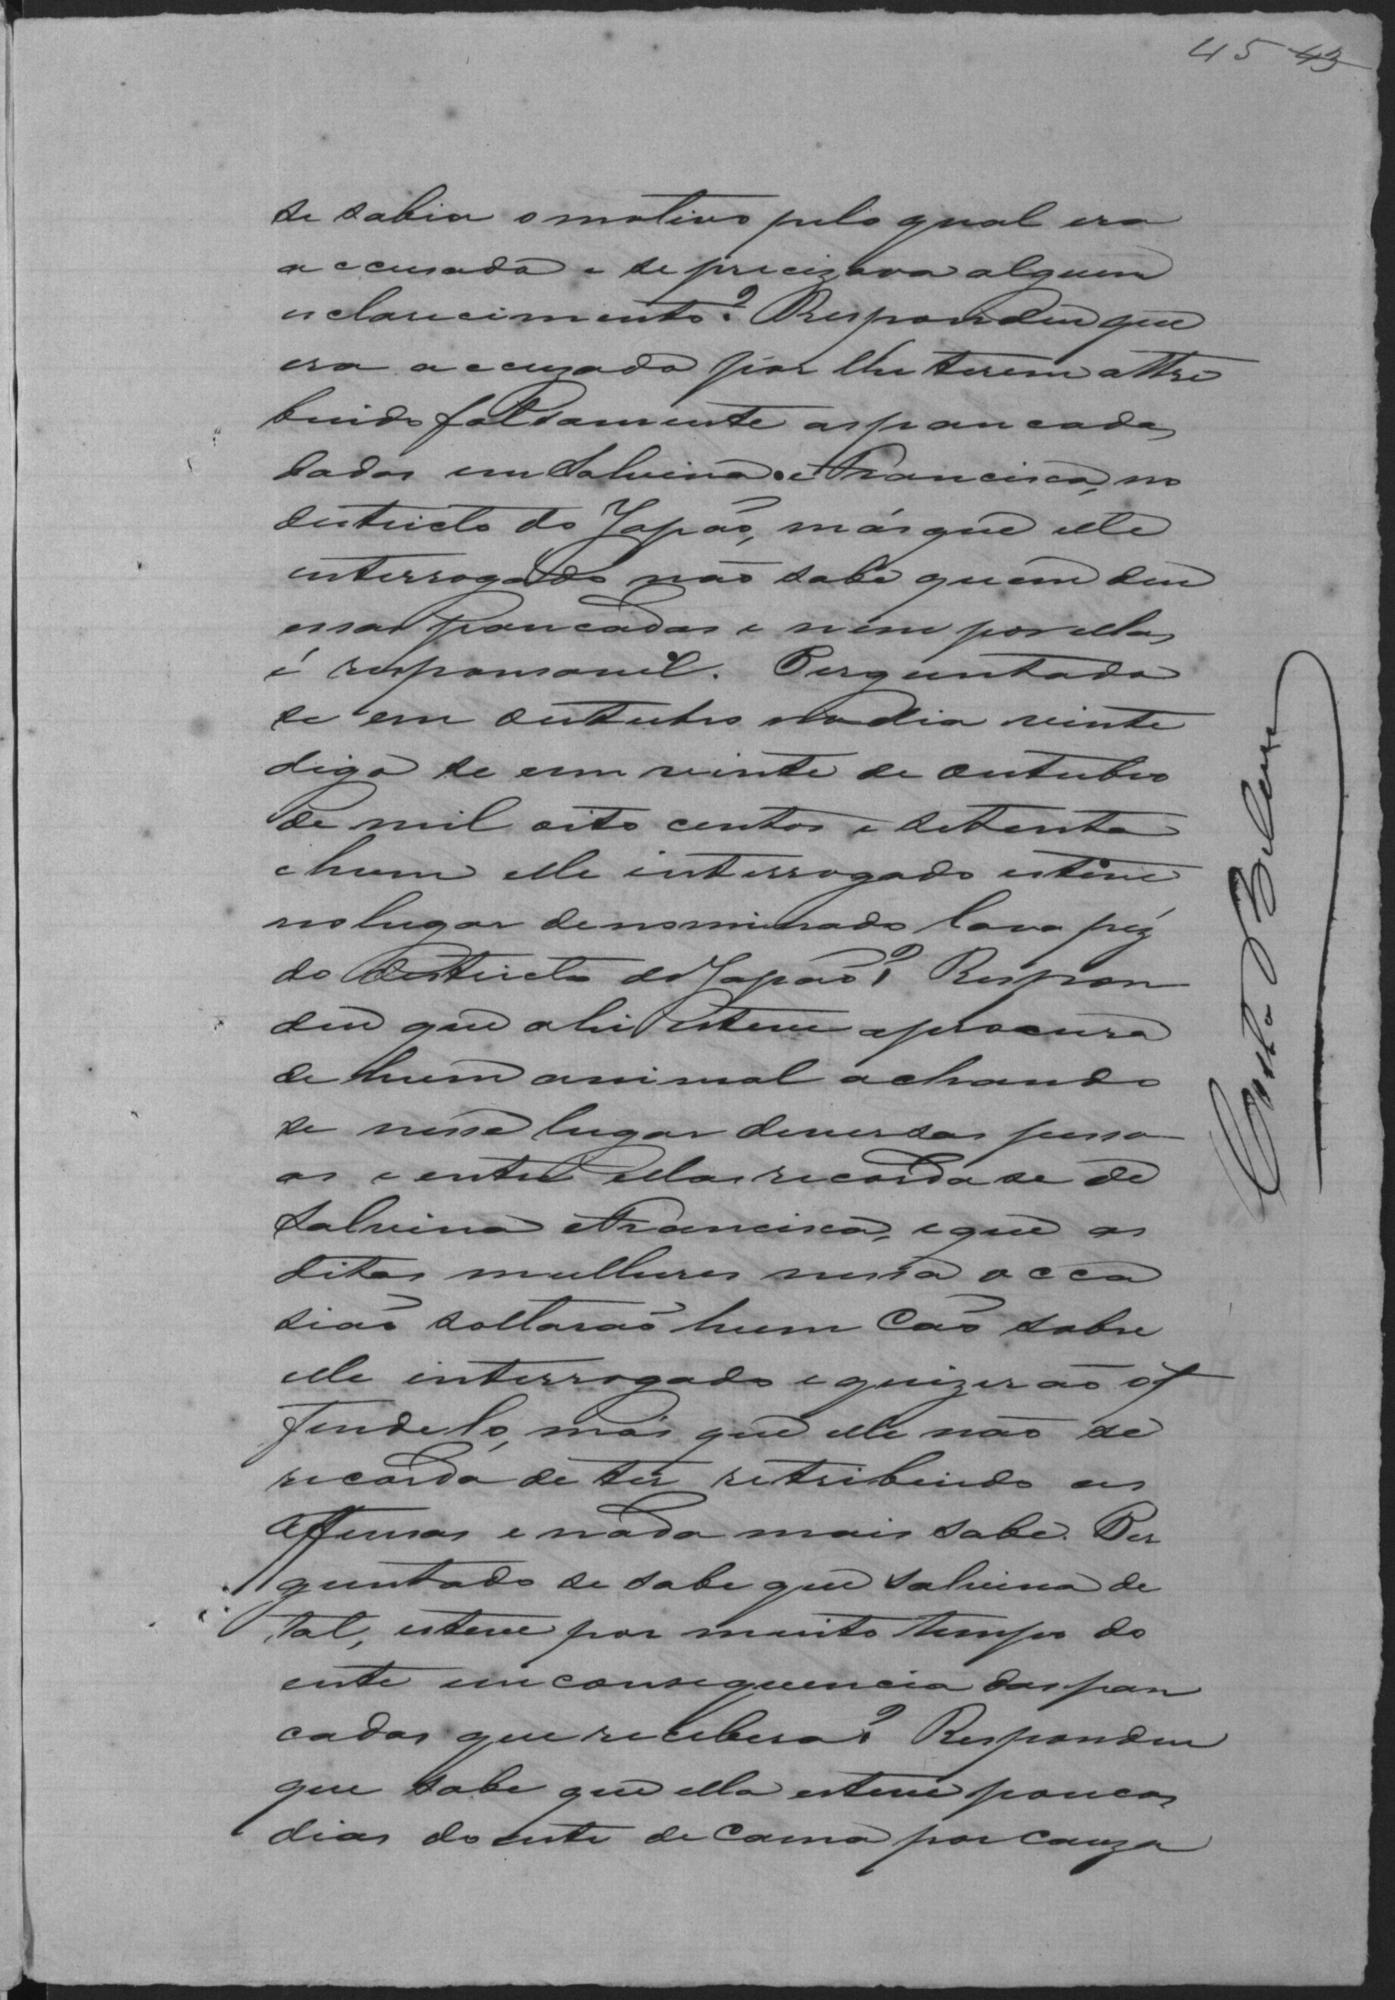 45 43
se sabia o motivo pelo qual era
accusado e se precizava algum
esclarecimento? Respondeu que
era accuzado por lhe terem attri
buido falsamente as pancadas
dadas em Salvina e Francisca, no
districto do Japão, más que elle
interrogado não sabe quem deu
essas pancadas e nem por ellas
é responsavel. Perguntado
se em outubro no dia vinte
digo se em vinte de outubro
de mil oito centos e setenta
e hum elle interrogado esteve
no lugar denominado lava péz
do districto do Japão? Respon
deu que ahi esteve a procura
de hum animal achando
se nesse lugar diversas pesso
as e entre ellas recorda se de
Salvina e Francisca, e que as
ditas mulheres nessa occa
sião soltarão hum Cão sobre
elle interrogado e quizerão of
fendelo, más que elle não se
recorda de ter retribuido as
offensas e nada mais sabe. Per
guntado se sabe que Salvina de
tal, esteve por muito tempo do
ente em consequencia das pan
cadas que recebera? Respondeu
que sabe que ella esteve poucos
dias doente de cama por cauza
Costa